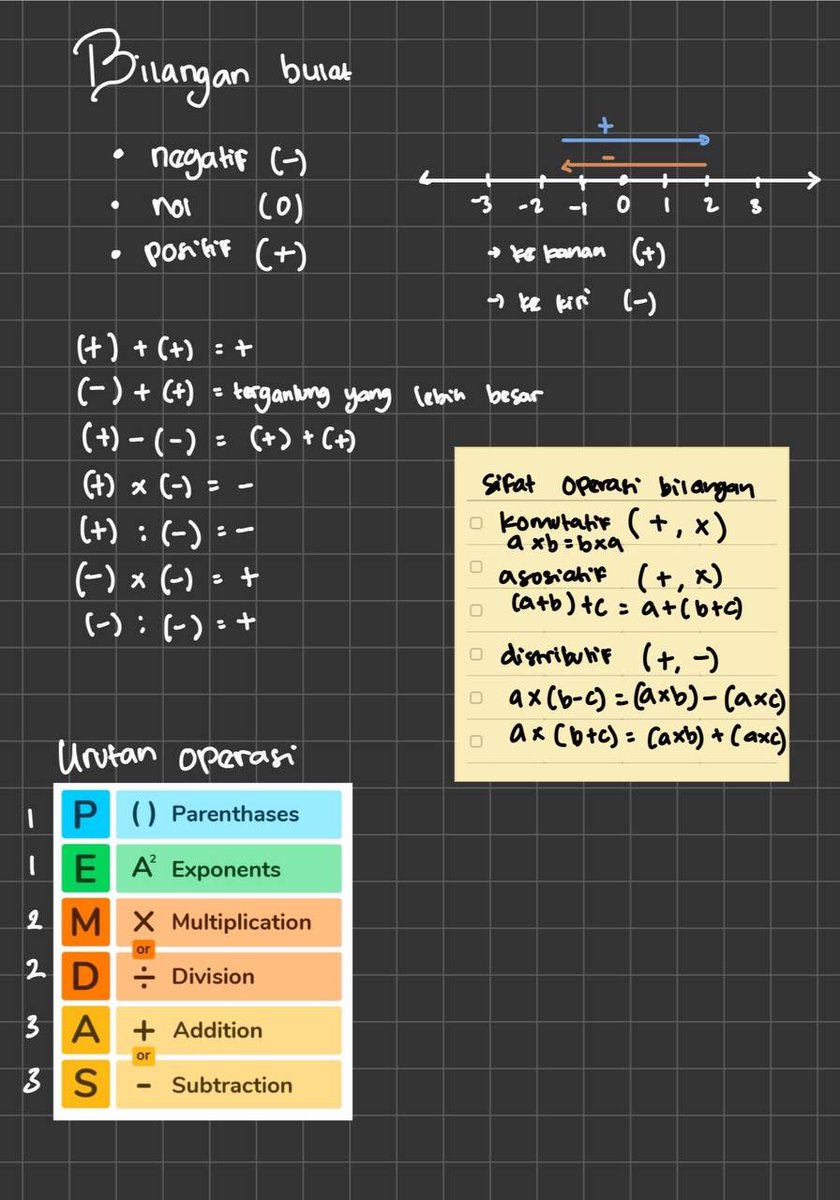 Bilangan bulat
• negatif (-)
• nol (0)
• positif (+)
+
-
-3 -2 -1 0 1 2 3
→ ke kanan (+)
→ ke kiri (-)
(+) + (+) = +
(-) + (+) = tergantung yang lebih besar
(+) - (-) = (+) + (+)
(+) x (-) = -
(+) : (-) = -
(-) x (-) = +
(-) : (-) = +
Sifat operasi bilangan
komutatif (+, x)
a x b = b x a
asosiatif (+, x)
(a+b) + c = a + (b+c)
distributif (+, -)
a x (b-c) = (axb) - (axc)
a x (b+c) = (axb) + (axc)
Urutan operasi
1 P ( ) Parenthases
1 E A² Exponents
2 M × Multiplication
or
2 D ÷ Division
3 A + Addition
or
3 S - Subtraction